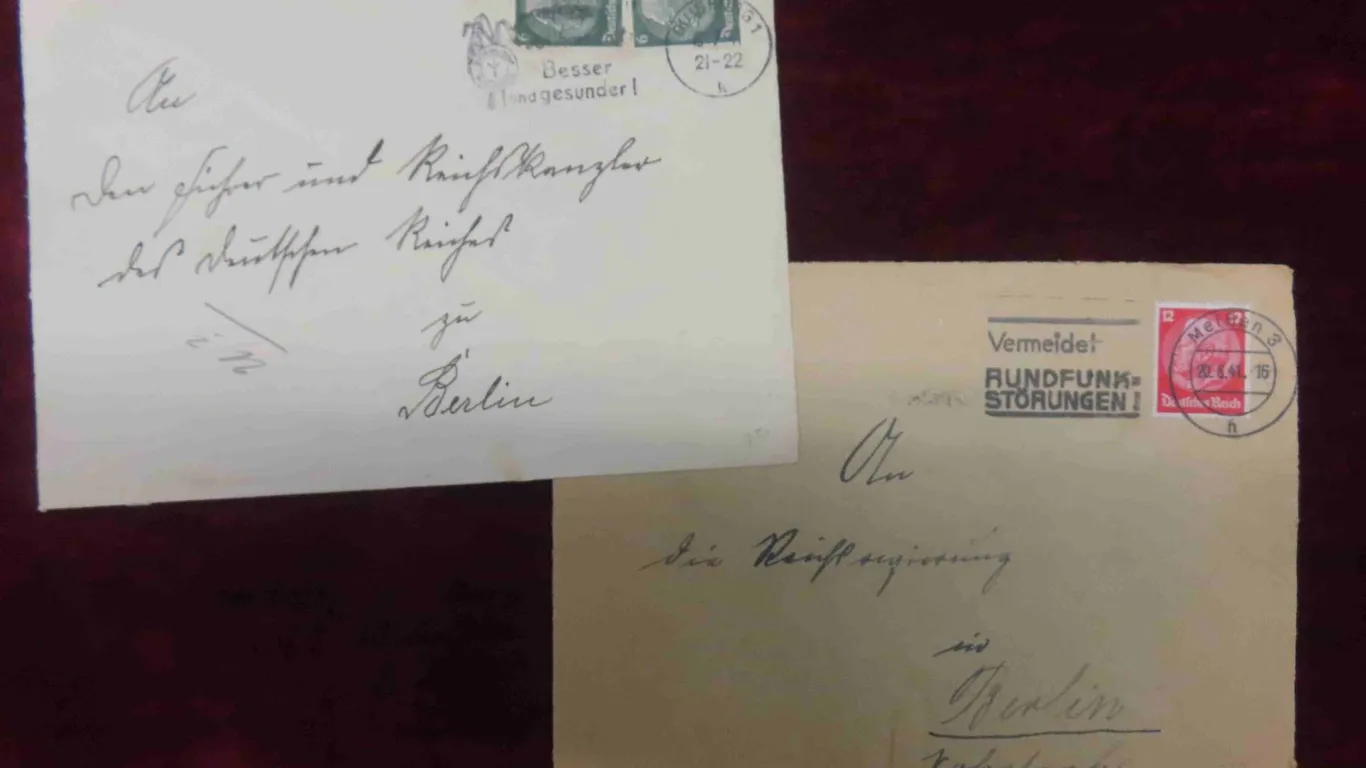 6
6
Besser
und gesunder!
21-22
h
An
den Führer und Reichskanzler
des Deutschen Reiches
zu
Berlin
Vermeidet
RUNDFUNK=
STÖRUNGEN!
12
12
Deutsches Reich
Meißen 3
20.6.41.-16
h
An
die Reichsregierung
in
Berlin